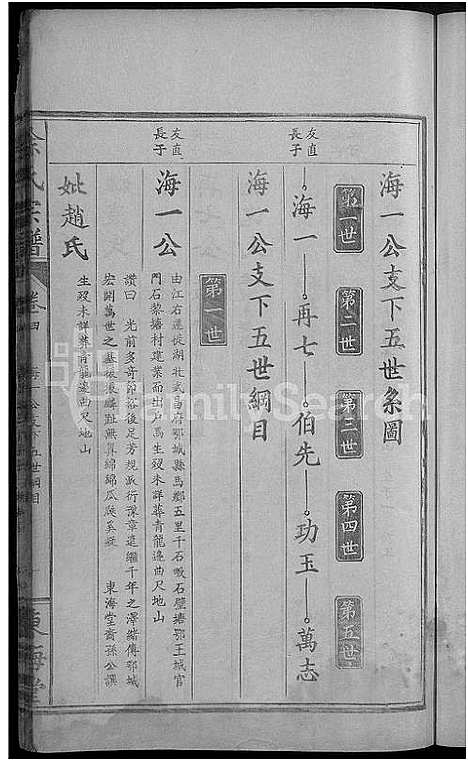 海一公支下五世系圖
第一世
第二世
第三世
第四世
第五世
友直長子
海一 再七 伯先 功玉 萬志
海一公支下五世綱目
第一世
友直長子
海一公
由江右遷徙湖北武昌府鄂城縣馬鄉五里千石畈石壁塘鄂王城官
門石黎塘村建業而出戶焉生歿未詳葬青龍邊曲尺地山
讚曰 光前多奇節裕後足芳規派衍豫章遠繼千年之澤緒傳鄂城
宏開萬世之基後後繼繼無算綿綿瓜瓞奚疑 東海堂裔孫公讚
妣趙氏
生歿未詳葬青龍邊曲尺地山
氏宗譜
卷四
海一公支下五世綱目
東海堂
FamilySearch